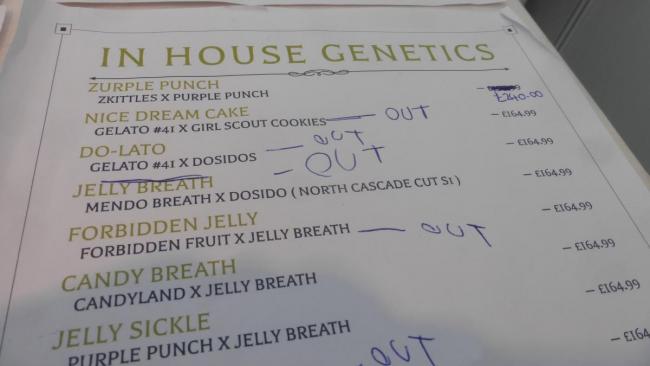 IN HOUSE GENETICS
ZURPLE PUNCH
ZKITTLES X PURPLE PUNCH —
£240.00
NICE DREAM CAKE
GELATO #41 X GIRL SCOUT COOKIES — OUT — £164.99
DO-LATO — OUT — £164.99
GELATO #41 X DOSIDOS — OUT
JELLY BREATH — £164.99
MENDO BREATH X DOSIDO ( NORTH CASCADE CUT S1 )
FORBIDDEN JELLY — £164.99
FORBIDDEN FRUIT X JELLY BREATH — OUT
CANDY BREATH — £164.99
CANDYLAND X JELLY BREATH — £164.99
JELLY SICKLE
PURPLE PUNCH X JELLY BREATH — £164
OUT